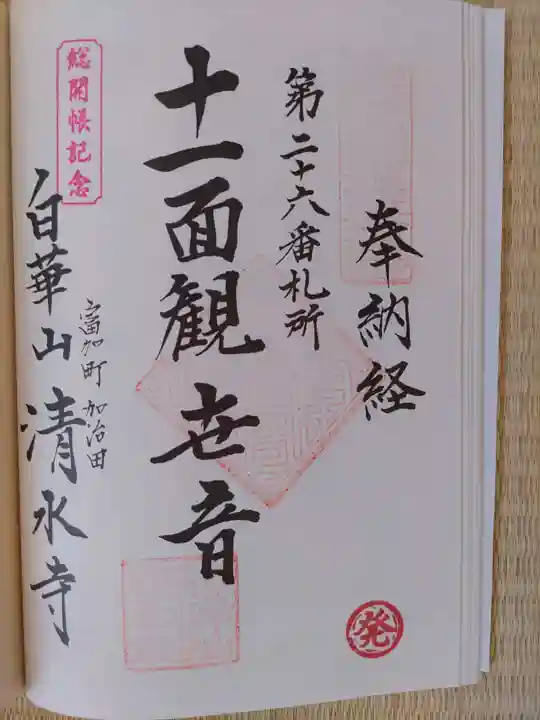 奉納経
第二十六番札所
十一面観世音
富加町 加治田
白華山 清水寺
総開帳記念
発